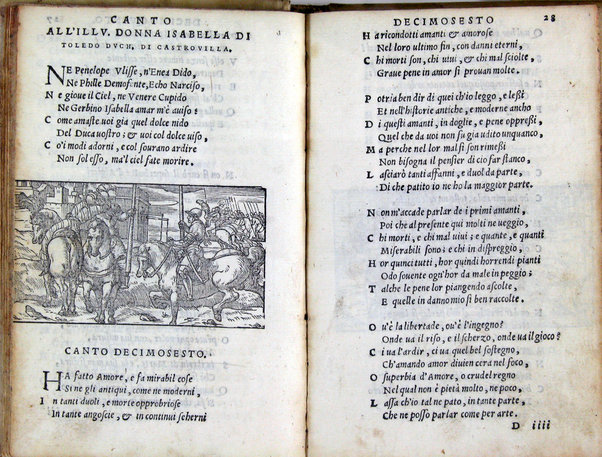 CANTO
ALL'ILLV. DONNA ISABELLA DI
TOLEDO DVCH. DI CASTROVILLA.
NE Penelope Vlisse, n'Enea Dido,
Ne Phille Demofonte, Echo Narciso,
Ne gioue il Ciel, ne Venere Cupido
Ne Gerbino Isabella amar m'è auiso:
Come amaste uoi gia quel dolce nido
Del Duca uostro; & uoi col dolce uiso,
Co'i modi adorni, e col sourano ardire
Non sol esso, ma'l ciel fate morire.
CANTO DECIMOSESTO.
HA fatto Amore, e fa mirabil cose
Si ne gli antiqui, come ne moderni,
In tanti duoli, e morte opprobriose
In tante angoscie, & in continui scherni
DECIMOSESTO 28
Ha ricondotti amanti & amorose
Nel loro ultimo fin, con danni eterni,
Chi morti son, chi uiui, & chi mal sciolte,
Graue pene in amor si prouan molte.
Potria ben dir di quei ch'io leggo, e lessi
Et nell'historie antiche, e moderne ancho
Di questi amanti, in doglie, e pene oppressi,
Quel che da uoi non fu gia udito unquanco,
Ma perche nel lor mal si son rimessi
Non bisogna il pensier di cio far stanco,
Lasciarò tanti affanni, e duol da parte,
Di che patito io ne ho la maggior parte.
Non m'accade parlar de i primi amanti,
Poi che al presente qui molti ne ueggio,
Chi morti, e chi mal uiui; e quante, e quanti
Miserabili sono; e chi in dispreggio;
Hor quinci tutti, hor quindi horrendi pianti
Odo souente ogn'hor da male in peggio;
Talche le pene lor piangendo ascolte,
E quelle in danno mio si ben raccolte.
Ou'è la libertade, ou'è l'ingegno?
Onde ua il riso, e il scherzo, onde ua il gioco?
Ci ua l'ardir, ci ua quel bel sostegno,
Ch'amando amor diuien cera nel foco,
O superbia d'Amore, o crudel regno
Nel qual non è pietà molto, ne poco,
Lassa ch'io tal ne pato, in tante parte,
Che ne posso parlar come per arte.
D iiii